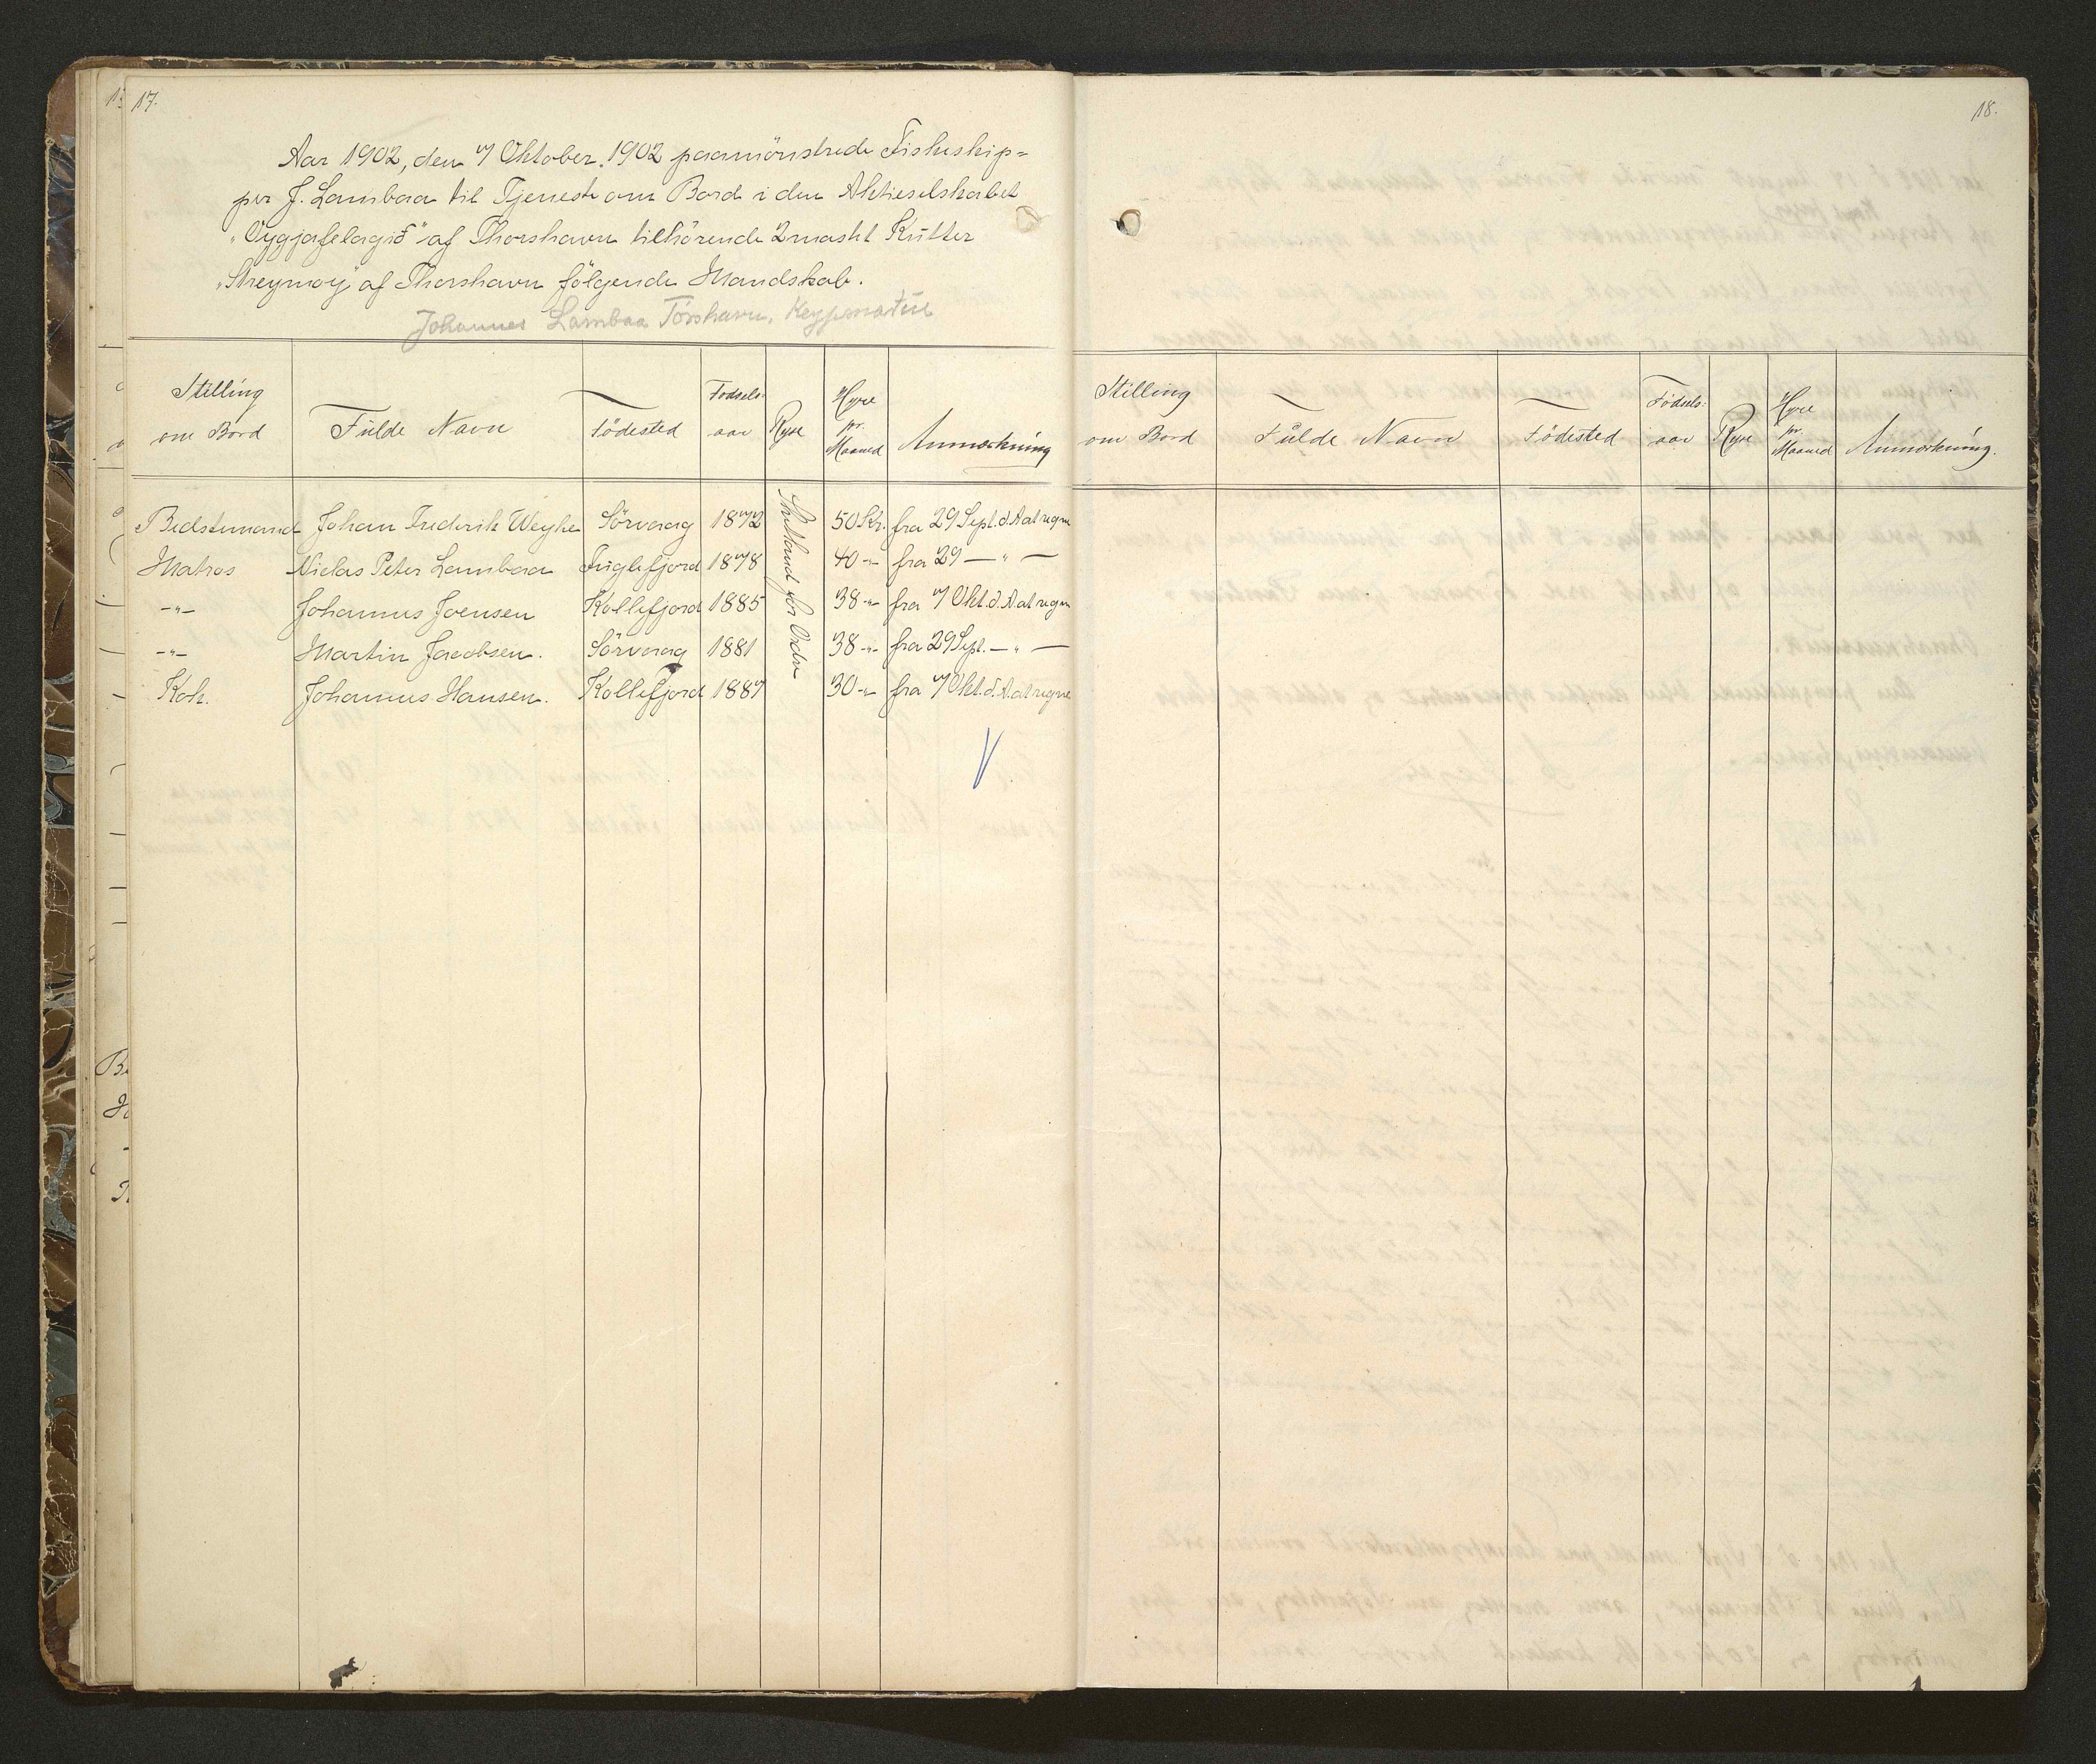 17.
Aar 1902, den 7 Oktober 1902 paamönstrede Fiskeskip=
per J. Lambaa til Tjeneste om Bord i den Aktieselskabet
"Oyggjafelagið" af Thorshavn tilhörende 2mastet Kutter
"Streymoy" af Thorshavn fölgende Mandskab.
Johannes Lambaa Tórshavn, Keypmaður
Stilling om Bord Fulde Navn Födested Födsels- aar Rejse Hyre pr. Maaned Anmærkning
Bedstemand Johan Frederik Weyhe Sörvaag 1872 50 Kr. fra 29 Sept. d. A at regne
Matros Niclas Peter Lambaa Fuglefjord 1878 40 -"- fra 29 — " —
-"- Johannes Joensen Kollefjord 1885 38 -"- fra 7 Okt. d. A at regne
-"- Martin Jacobsen. Sörvaag 1881 38 -"- fra 29 Sept. — " —
Kok. Johannes Hansen. Kollefjord 1887 30 -"- fra 7 Okt. d. A at regne
Shetland for Ordre
18.
Stilling om Bord Fulde Navn Födested Födsels- aar Rejse Hyre pr. Maaned Anmærkning.